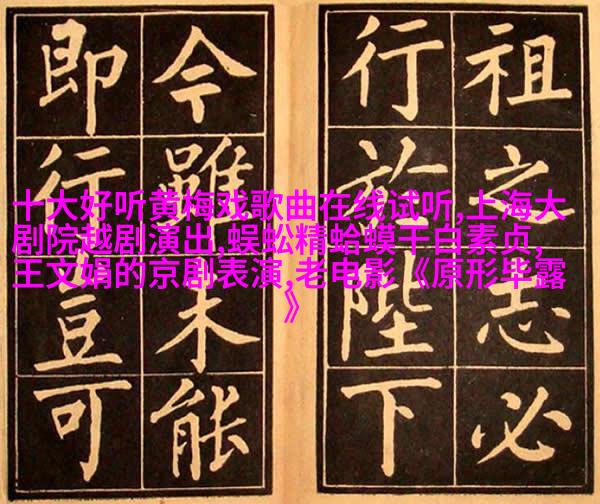 祖之志必
行於陛下
今雖未能
即行豈可
十大好听黄梅戏歌曲在线试听,上海大
剧院越剧演出,蜈蚣精蛤蟆干白素贞,
王文娟的京剧表演,老电影《原形毕露
》